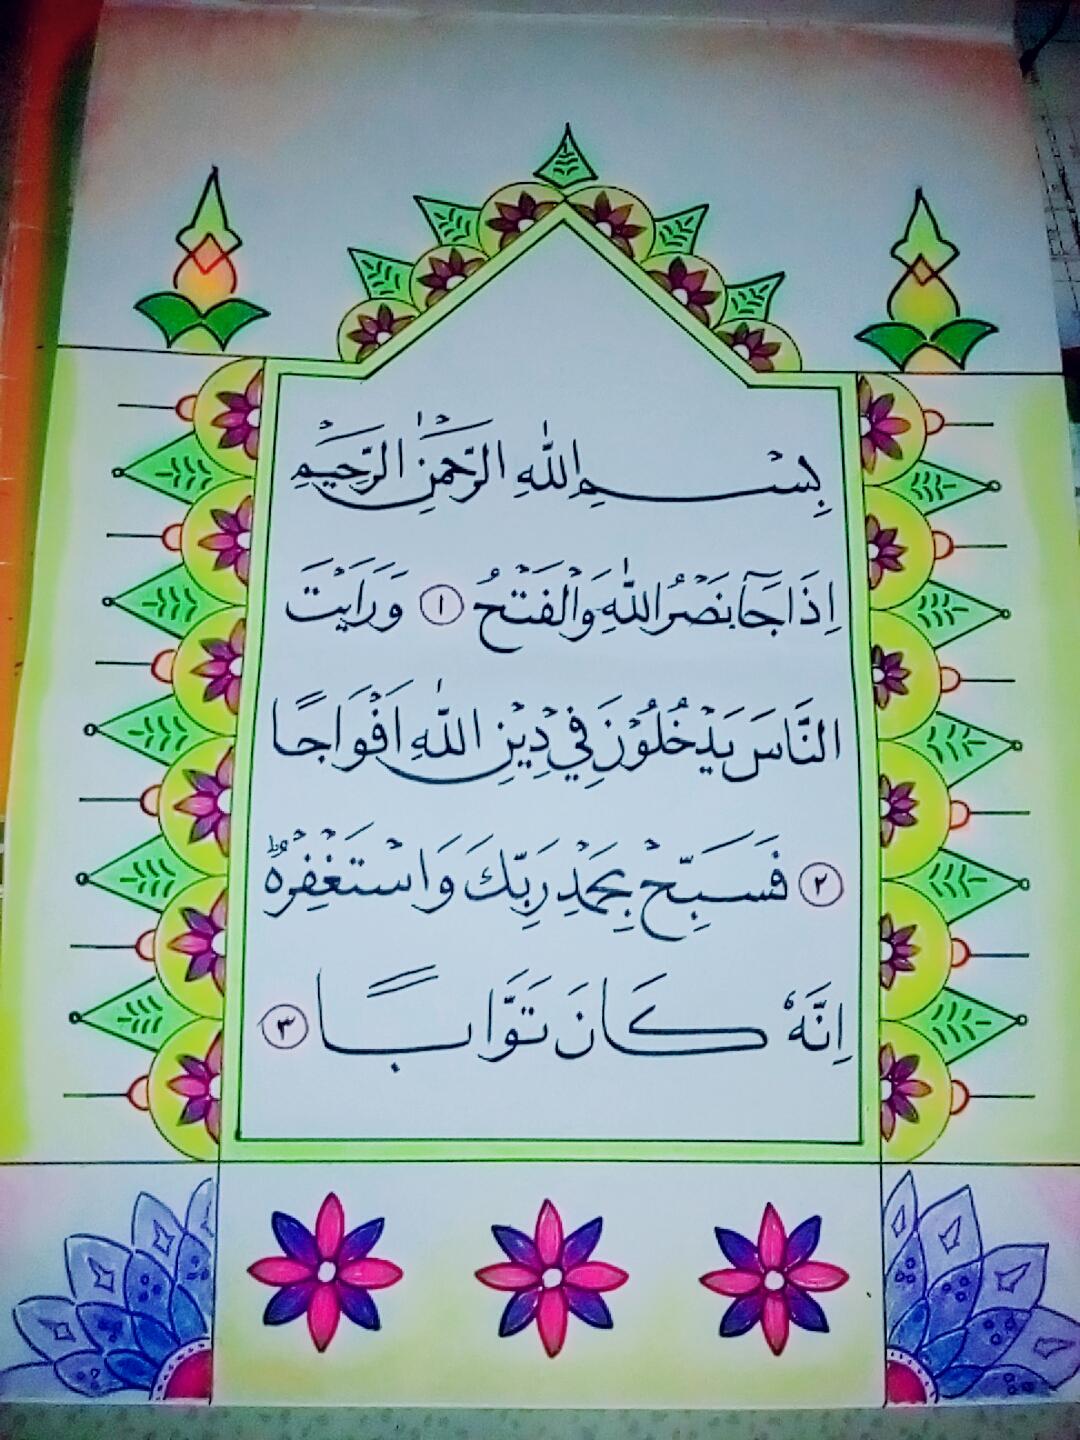 بِسْمِ اللّٰهِ الرَّحْمٰنِ الرَّحِيْمِ
اِذَا جَآءَ نَصْرُ اللّٰهِ وَالْفَتْحُ ١ وَرَاَيْتَ
النَّاسَ يَدْخُلُوْنَ فِيْ دِيْنِ اللّٰهِ اَفْوَاجًا
٢ فَسَبِّحْ بِحَمْدِ رَبِّكَ وَاسْتَغْفِرْهُ ؕ
اِنَّهٗ كَانَ تَوَّابًا ٣